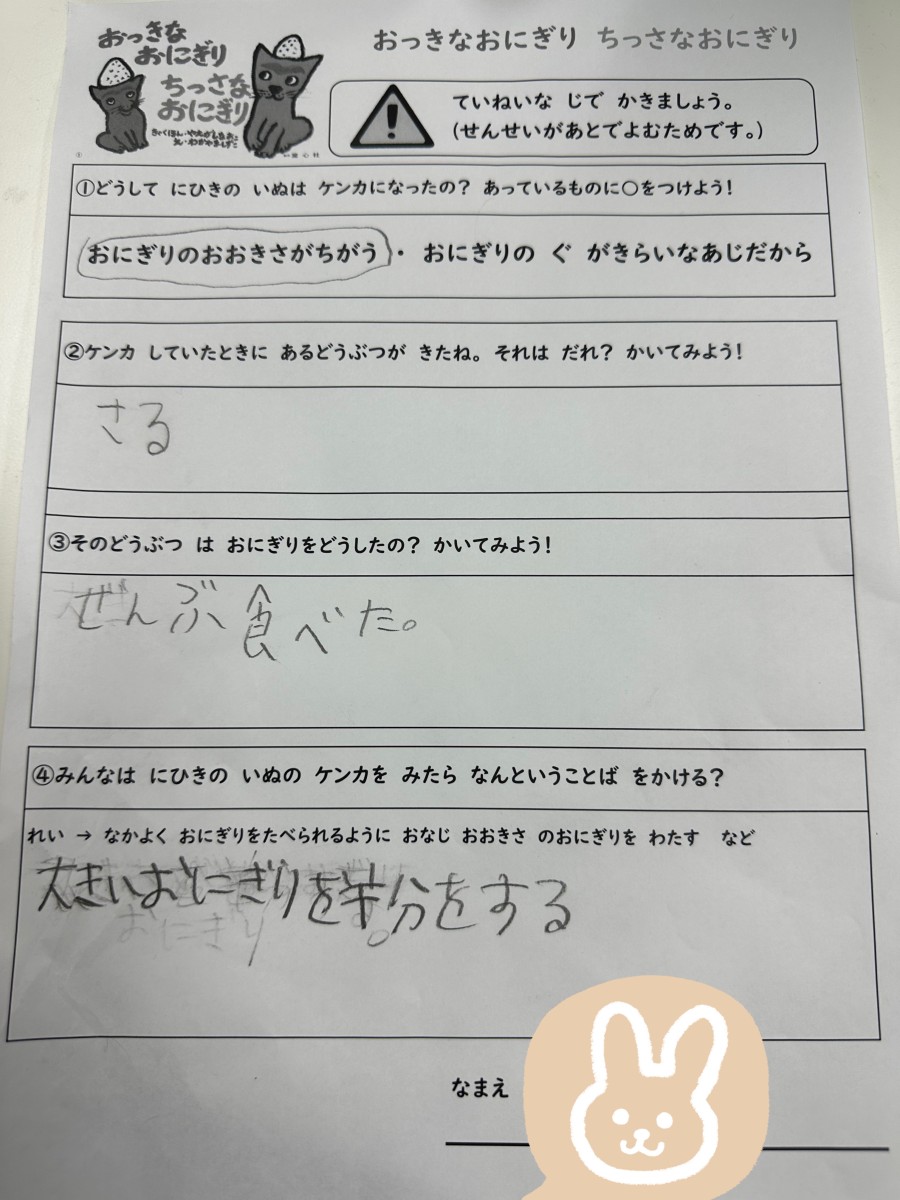 おっきな
おにぎり
ちっさな
おにぎり
おっきなおにぎり ちっさなおにぎり
ていねいな じで かきましょう。
(せんせいがあとでよむためです。)
①どうして にひきの いぬは ケンカになったの? あっているものに○をつけよう!
おにぎりのおおきさがちがう・ おにぎりの ぐ がきらいなあじだから
②ケンカ していたときに あるどうぶつが きたね。それは だれ? かいてみよう!
さる
③そのどうぶつ は おにぎりをどうしたの? かいてみよう!
ぜんぶ食べた。
④みんなは にひきの いぬの ケンカを みたら なんということば をかける?
れい → なかよく おにぎりをたべられるように おなじ おおきさ のおにぎりを わたす など
大きいおにぎりを半分をする
なまえ